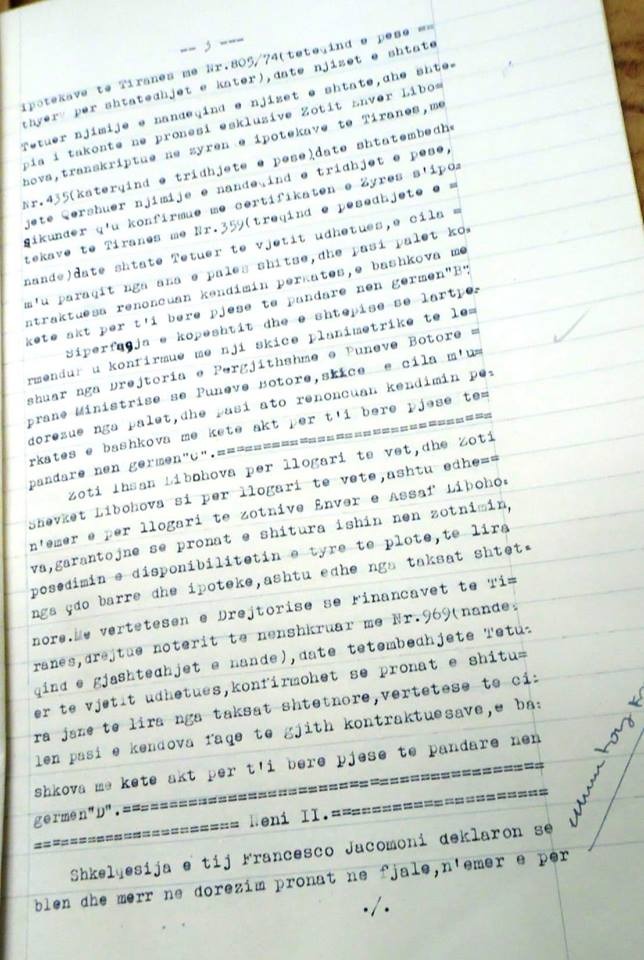 -- 3 ---
ipotekave te Tiranes me Nr.805/74(teteqind e pese ==
thyer per shtatedhjet e kater),date njizet e shtate
Tetuer njimije e nandeqind e njizet e shtate,dhe shte-
pia i takonte ne pronesi eskluzive Zotit Enver Libo=
hova,transkriptue ne zyren e ipotekave te Tiranes,me
Nr.435(katerqind e tridhjete e pese)date shtatembedh-
jete Qershuer njimije e nandeqind e tridhjet e pese,
sikunder q'u konfirmue me certifikaten e Zyres s'ipo-
tekave te Tiranes me Nr.359(treqind e pesedhjete e =
nande)date shtate Tetuer te vjetit udhetues,e cila =
m'u paraqit nga ana e pales shitse,dhe pasi palet ko-
ntraktuesa renoncuan kendimin perkates,e bashkova me
kete akt per t'i bere pjese te pandare nen germen"B".
Siperfaqja e kopeshtit dhe e shtepise se lartpe-
rmendur u konfirmue me nji skice planimetrike te le=
shuar nga Drejtoria e Pergjithshme e Puneve Botore =
prane Ministrise se Puneve Botore,skice e cila m'u=
dorezue nga palet,dhe pasi ato renoncuan kendimin pe-
rkates e bashkova me kete akt per t'i bere pjese te=
pandare nen germen"C".==============================
Zoti Ihsan Libohova per llogari te vet,dhe Zoti
Shevket Libohova si per llogari te vete,ashtu edhe==
n'emer e per llogari te Zotnive Enver e Assaf Liboho-
va,garantojne se pronat e shitura ishin nen zotnimin,
posedimin e disponibilitetin e tyre te plote,te lira
nga çdo barre dhe ipoteke,ashtu edhe nga taksat shtet-
nore.Me vertetesen e Drejtorise se Financavet te Ti=
ranes,drejtue noterit te nenshkruar me Nr.969(nande-
qind e gjashtedhjet e nande),date tetembedhjete Tetu-
er te vjetit udhetues,konfirmohet se pronat e shitu=
ra jane te lira nga taksat shtetnore,vertetese te ci-
len pasi e kendova faqe te gjith kontraktuesave,e ba-
shkova me kete akt per t'i bere pjese te pandare nen
germen"D".==========================================
===================== Neni II.======================
Shkelqesija e tij Francesco Jacomoni deklaron se
blen dhe merr ne dorezim pronat ne fjale,n'emer e per
./.